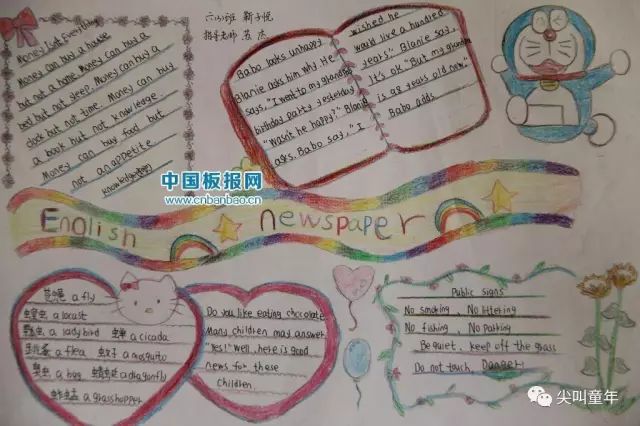 Money Isn't Everything
Money can buy a house
but not a home. Money can buy a
bed but not sleep. Money can buy a
clock but not time. Money can buy
a book but not knowledge.
Money can buy food but
not an appetite.
六(3)班
指导老师
Babo looks unhappy
Blanie asks him why. He
says, "I went to my grandma
birthday party yesterday
"Wasn't he happy?" Blanie
asks. Babo say, "I
wished he
would live a hundred
years". Blanie say,
It's ok "But my grandma
is 98 years old now."
Babo adds.
中国板报网
www.cnbanbao.cn
English newspaper
苍蝇 a fly
蝗虫 a locast
瓢虫 a ladybird 蝉 a cicada
跳蚤 a flea 蚊子 a mosquito
臭虫 a bug 蜻蜓 a dragonfly
蚱蜢 a grasshopper
Do you like eating chocolate
Many children may answer
"Yes!" Well, here is good
news for these
children.
Public signs
No smoking, No littering
No fishing, No parking
Be quiet, keep off the grass
Do not touch, Danger!
尖叫童年